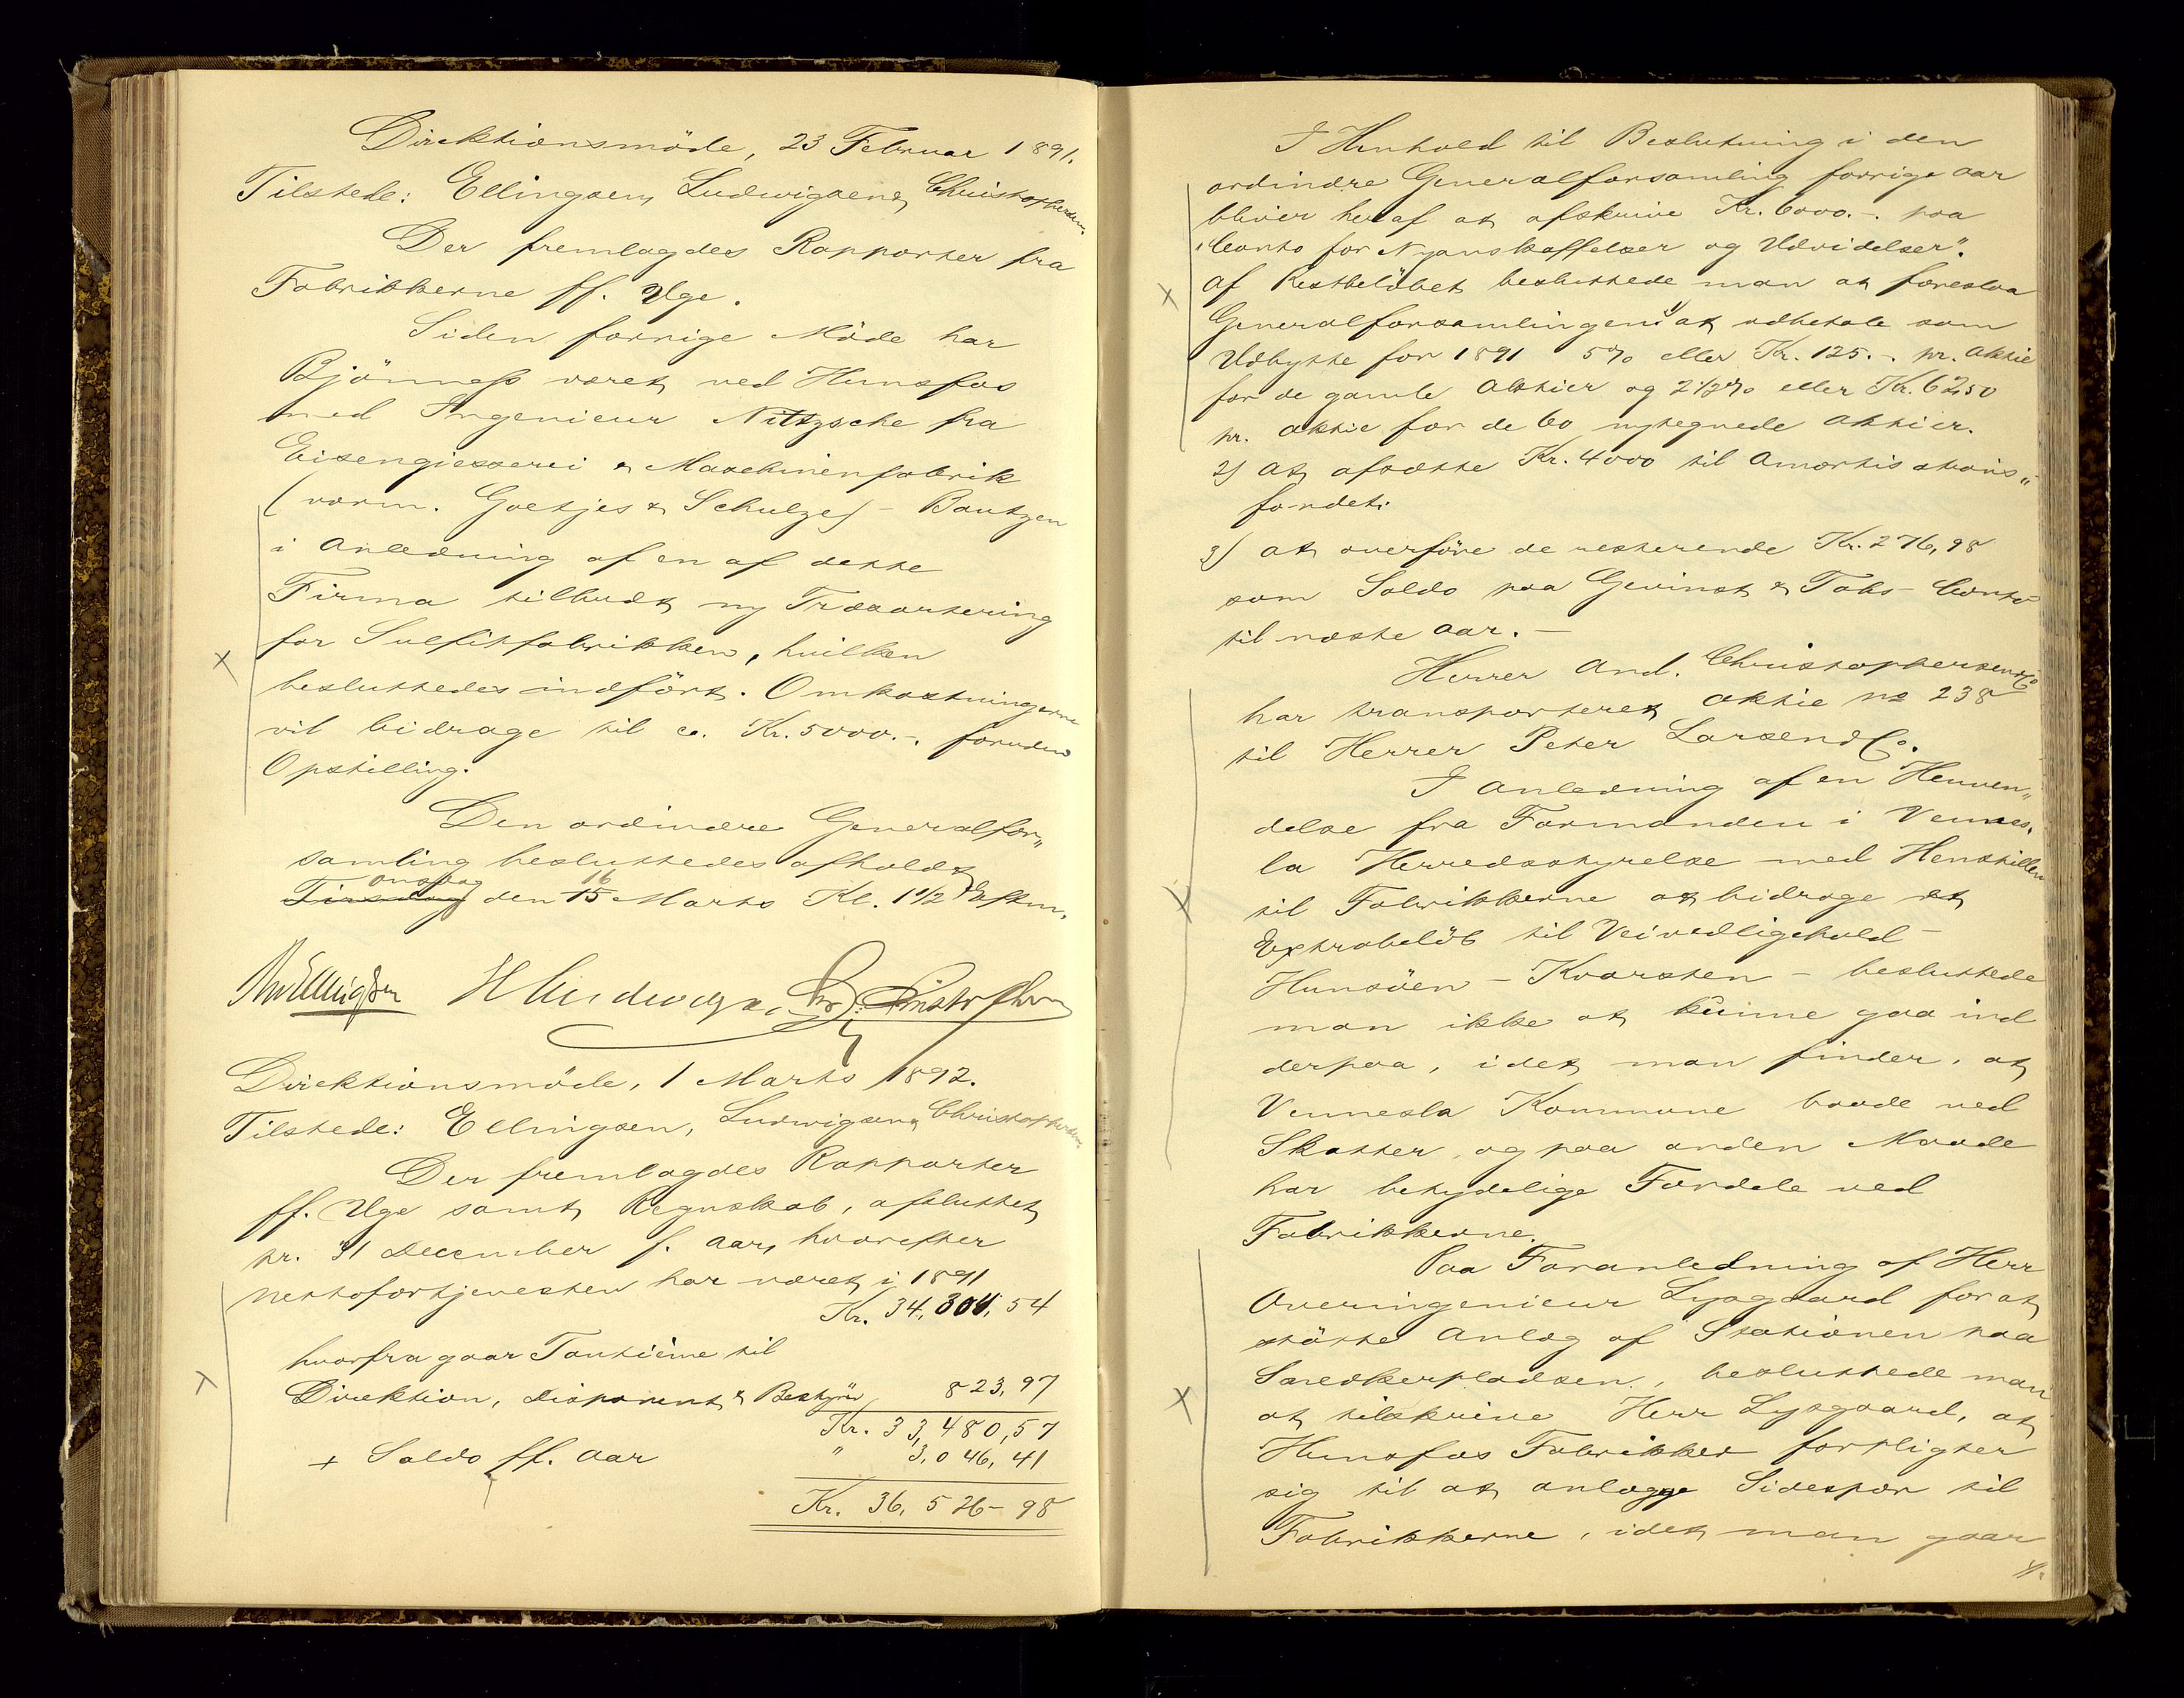 Direktionsmöde, 23 Februar 1891.
Tilstede: Ellingsen, Ludwigsen & Christophersen.
Der fremlagdes Rapporter fra
Fabrikkerne ff. Uge.
Siden forrige Möde har
Bjönness været ved Hunsfos
med Ingenieur Nittzsche fra
Eisengiesserei & Maschinenfabrik
(vorm. Goetjes & Schulze) - Bautzen
i Anledning af en af dette
Firma tilbudt ny Træsortering
for Sulfitfabrikken, hvilken
besluttedes indfört. Omkostningerne
vil bidrage til ca. Kr. 5000.-. foruden
Opstilling.
Den ordinære Generalfor„
samling besluttedes afholdt
Tirsdag onsdag den 15 16 Marts Kl. 1 1/2 Eftm.
Ellingsen H Ludwigsen Chr. Christophersen
Direktionsmöde, 1 Marts 1892.
Tilstede: Ellingsen, Ludwigsen & Christophersen
Der fremlagdes Rapporter
ff. Uge samt Regnskab, afsluttet
pr. 31 December f. Aar, hvorefter
Nettofortjenesten har været i 1891
Kr. 34,304,54
hvorfra gaar Tantième til
Direktion, Disponent & Bestyrer 823,97
Kr. 33,480,57
+ Saldo ff. Aar " 3,046,41
Kr. 36,526-98
I Henhold til Beslutning i den
ordinære Generalforsamling forrige Aar
bliver heraf at afskrive Kr. 6000.-. paa
"Conto for Nyanskaffelser og Udvidelser".
Af Restbelöbet besluttede man at foreslaa
Generalforsamlingen: 1) at udbetale som
Udbytte for 1891 5% eller Kr. 125.-. pr. Aktie
for de gamle Aktier og 2 1/2% eller Kr. 62,50
pr. Aktie for de 60 nytegnede Aktier.
2) At afsætte Kr. 4000 til Amortisations„
fondet.
3) At overföre de resterende Kr. 276,98
som Saldo paa Gevinst & Tabs-Conto
til næste Aar.-
Herrer And. Christophersen & Co
har transporteret Aktie No 238
til Herrer Peter Larsen & Co.
I Anledning af en Henven„
delse fra Formanden i Vennes„
la Herredsstyrelse med Henstillen
til Fabrikkerne at bidrage et
Extrabelöb til Veivedligehold -
Hunsöen - Kvarsten - besluttede
man ikke at kunne gaa ind
derpaa, idet man finder, at
Vennesla Kommune baade ved
Skatter, og paa anden Maade
har betydelige Fordele ved
Fabrikkerne.
Paa Foranledning af Herr
Overingenieur Lysgaard for at
stötte Anlæg af Stationen paa
Smedkerpladsen, besluttede man
at tilskrive Herr Lysgaard, at
Hunsfos Fabrikker forpligter
sig til at anlægge Sidespor til
Fabrikkerne, idet man gaar